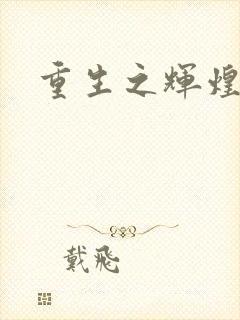 重生之輝煌
戴飛